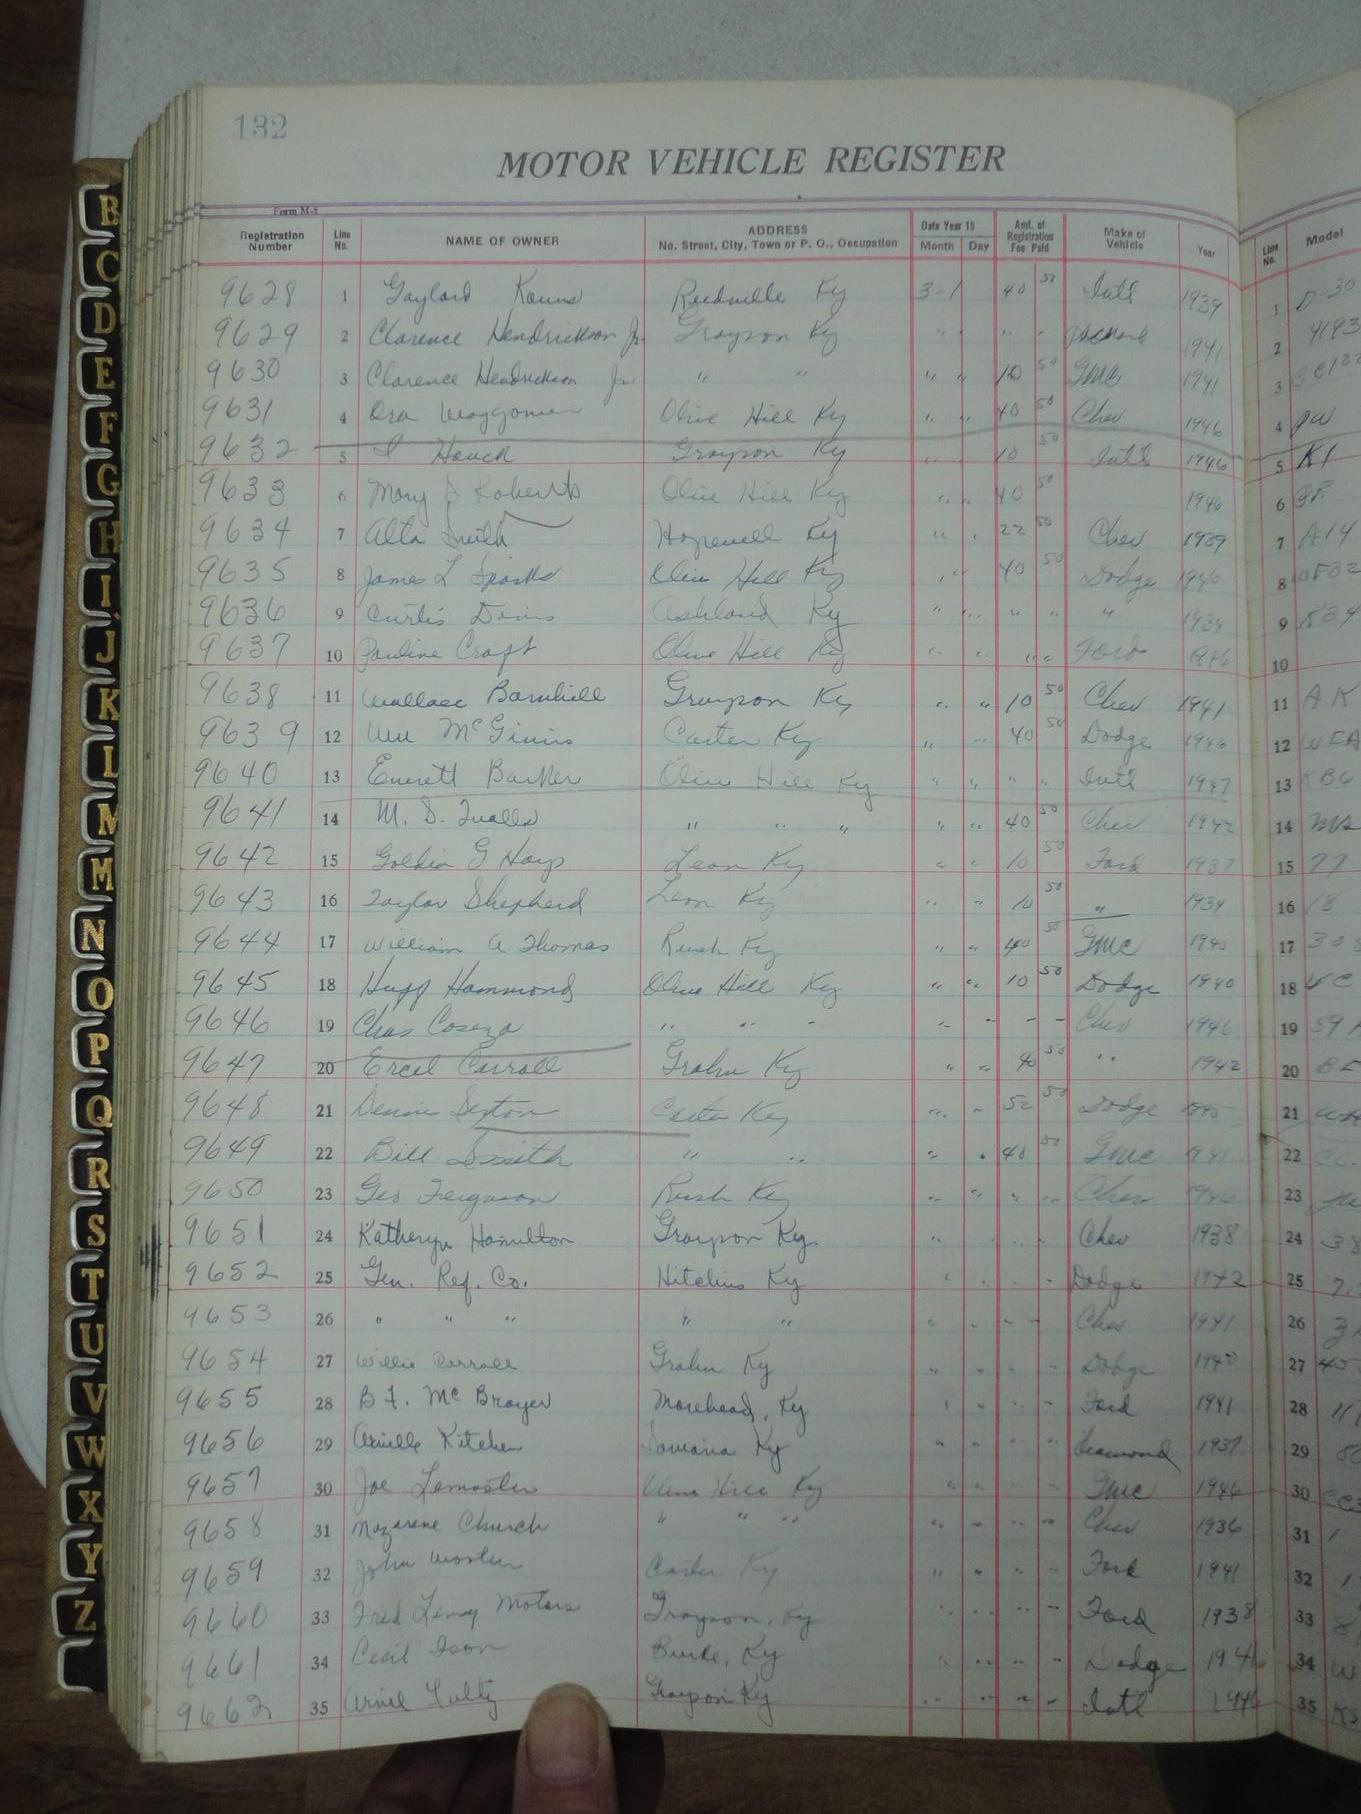 132
MOTOR VEHICLE REGISTER
Form M-5
Registration Number Line No. NAME OF OWNER ADDRESS No. Street, City, Town or P. O., Occupation Date Year 19 Month Day Amt. of Registration Fee Paid Make of Vehicle Year Line No. Model
9628 1 Gaylord Kouns Ky 3-1 40 50 Intl 1939 1 D-30
9629 2 Clarence Hendrickson Jr. Grayson Ky " " " " 1941 2
9630 3 Clarence Hendrickson Jr. " " " " 10 50 GMC 1941 3
9631 4 Ora Waggoner Olive Hill Ky " " 40 50 Chev 1946 4
9632 5 Houck Grayson Ky " " 10 50 Intl 1946 5 K1
9633 6 Mary J Roberts Olive Hill Ky " " 40 50 1946 6
9634 7 Alta Smith Hopewell Ky " " 22 50 Chev 1939 7 A14
9635 8 James L Sparks Olive Hill Ky " " 40 50 Dodge 1940 8
9636 9 Curtis Davis Ashland Ky " " " " " 1934 9 K34
9637 10 Pauline Craft Olive Hill Ky " " " " Ford 1946 10
9638 11 Wallace Barnhill Grayson Ky " " 10 50 Chev 1941 11 AK
9639 12 Wm McGinnis Carter Ky " " 40 50 Dodge 1946 12 WFA
9640 13 Everett Barker Olive Hill Ky " " " " Intl 1947 13 KB6
9641 14 M. D. Qualls " " " " " 40 50 Chev 1942 14 MS
9642 15 Goldia G Hays Leon Ky " " 10 50 Ford 1937 15 77
9643 16 Taylor Shepherd Leon Ky " " 10 50 " 1934 16 18
9644 17 William A Thomas Rush Ky " " 40 50 GMC 1940 17
9645 18 Hugg Hammond Olive Hill Ky " " 10 50 Dodge 1940 18 VC
9646 19 Chas " " " " " " " Chev 1946 19
9647 20 Ercel Carroll Grahn Ky " " 40 50 " 1942 20
9648 21 Dennie Sexton Carter Ky " " 52 50 Dodge 21
9649 22 Bill Smith " " " " 40 50 GMC 1941 22
9650 23 Geo Ferguson Rush Ky " " " " Chev 1946 23
9651 24 Katheryn Hamilton Grayson Ky. " " " " Chev 1938 24 38
9652 25 Gen. Ref. Co. Hitchins Ky " " " " Dodge 1942 25
9653 26 " " " " " " " " " Chev 1941 26
9654 27 Willie Carroll Grahn Ky " " " " Dodge 1940 27
9655 28 B F. McBrayer Morehead, Ky " " " " Ford 1941 28
9656 29 Arville Kitchen Ky " " " " 1937 29
9657 30 Joe Lemaster Olive Hill Ky " " " " GMC 1946 30
9658 31 Nazarene Church " " " " " " " Chev 1936 31
9659 32 John Wooten Carter Ky " " " " Ford 1941 32
9660 33 Fred Motors Grayson, Ky " " " " Ford 1938 33
9661 34 Cecil Ison Burke, Ky " " " " Dodge 34
9662 35 Arvil Fultz Grayson Ky " " " " Intl 1946 35
B
C
D
E
F
G
H
I
J
K
L
M
M
N
O
P
Q
R
S
T
U
V
W
X
Y
Z